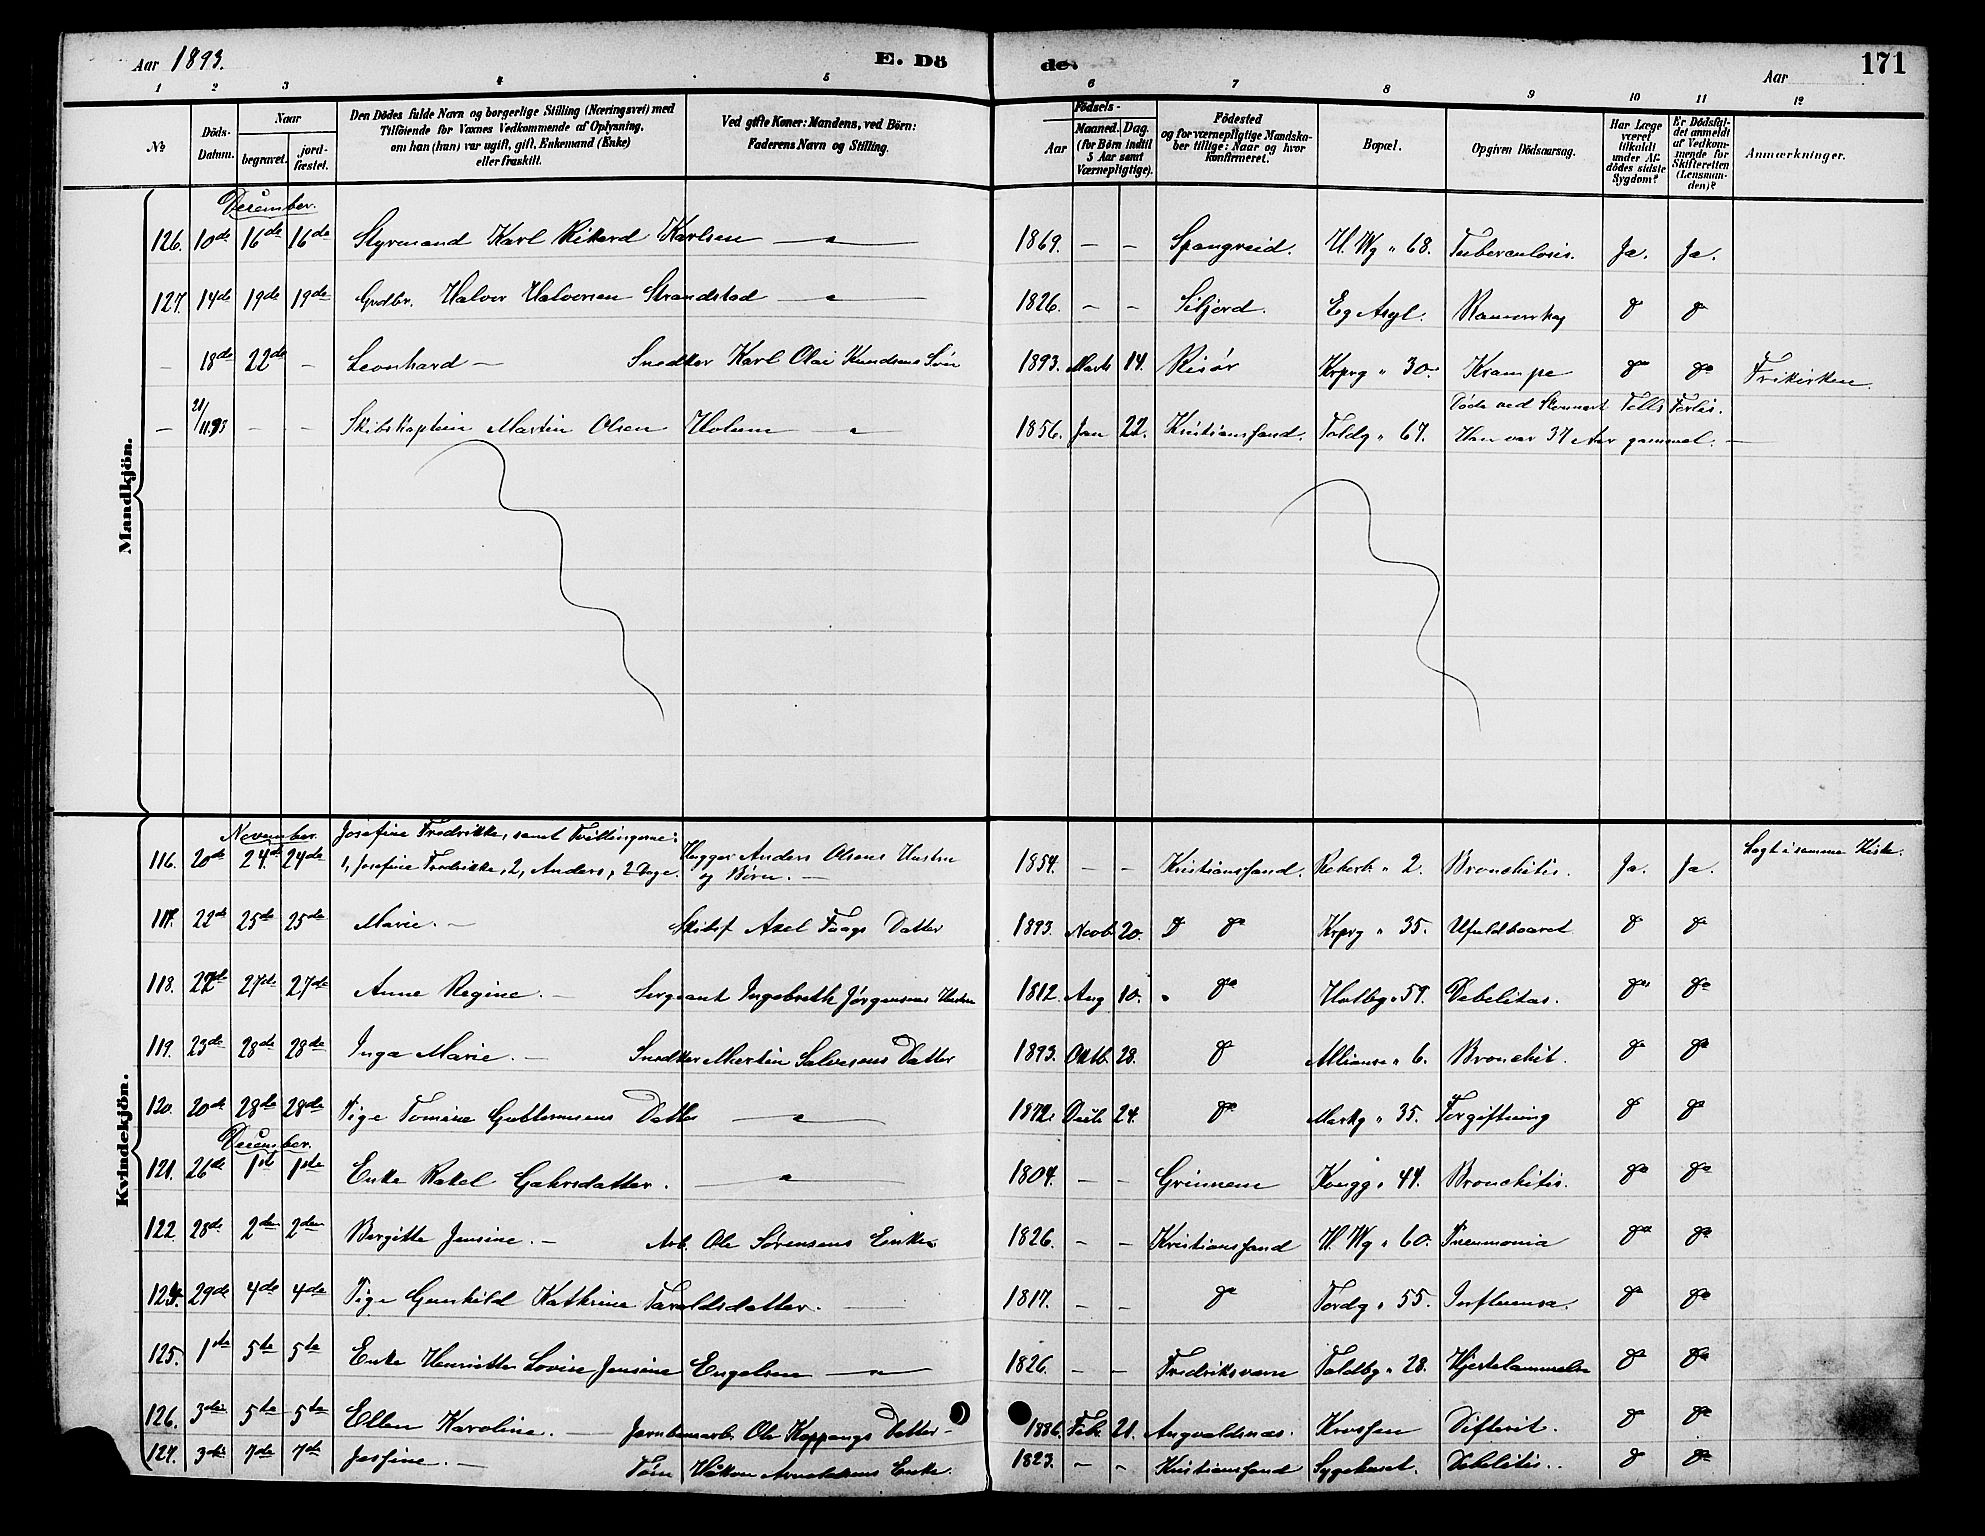 Aar 1893. E. Döde. Aar 171
1 2 3 4 5 6 7 8 9 10 11 12
No
Döds-Datum.
Naar
begravet.
jord-fæstet.
Den Dödes fulde Navn og borgerlige Stilling (Næringsvei) med
Tilföiende for Voxnes Vedkommende af Oplysning,
om han (hun) var ugift, gift, Enkemand (Enke)
eller fraskilt.
Ved gifte Koner: Mandens, ved Börn:
Faderens Navn og Stilling.
Födsels-
Aar
Maaned. Dag.
(for Börn indtil
5 Aar samt
Værnepligtige).
Födested
og for værnepligtige Mandska-
ber tillige: Naar og hvor
konfirmeret.
Bopæl.
Opgiven Dödsaarsag.
Har Læge
været
tilkaldt
under Af-
dödes sidste
Sygdom?
Er Dödsfal-
det anmeldt
af Vedkom-
mende for
Skifteretten
(Lensman-
den)?
Anmærkninger.
Mandkjön.
December.
126. 10de 16de 16de Styrmand Karl Rikard Karlsen — " — 1869. — — Spangreid. V. Wg " 68. Tuberculosis. Ja. Ja.
127. 14de 19de 19de Grdbr. Halvor Halvorsen Strandstad — " — 1826. — — Siljord. Eg Asyl. do do
— 18de 22de — Leonhard — Snedker Karl Olai Knudsens Sön 1893. Marts 14. Risör Krprg " 30. Krampe do do Frikirken
— 21/11 93 — — Skibskaptein Martin Olsen Holum — " — 1856. Jan 22. Kristianssand. Toldg " 67. Döde ved Forlis.
Han var 37 Aar gammel. —
Kvindekjön.
November.
116. 20de 24de 24de Josefine Fredrikke, samt Tvillingerne:
1, Josefine Fredrikke, 2, Anders, 2 Dage. Hugger Anders Olsens Hustru
og Börn. — 1854. — — Kristianssand. Rekerb. " 2. Bronchitis. Ja. Ja. Lagt i samme Kiste.
117. 22de 25de 25de Marie. — Skibsf Axel Faags Datter 1893. Novb 20. do do Krprg " 35. Ufuldbaaret do do
118. 22de 27de 27de Anne Regine. — Sergeant Ingebreth Jörgensens Hustru 1812. Aug 10. " do Holbg " 59. Debelitas. do do
119. 23de 28de 28de Inga Marie. — Snedker Martin Salvesens Datter 1893. Oktb. 28. do Alliance " 6. Bronchit. do do
120. 20de 28de 28de Pige Tomine Guttormsens Datter — " — 1872. 24. do Markg " 35. Forgiftning do do
December.
121. 26de 1ste 1ste Enke Rakel Gahrsdatter. — " — 1804. — — Grimnem Kongg " 44. Bronchitis. do do
122 28de 2den 2den Birgitte Jensine. — Arb. Ole Sörensens Enke 1826. — — Kristianssand V. Wg " 60. Pneumonia do do
124. 29de 4de 4de Pige Gunhild Kathrine Taraldsdatter. — 1817. — — do Tordg " 55. Influensa. do do
125. 1ste 5te 5te Enke Henriette Lovise Jensine Engelsen — " — 1826. — — Fredriksværn Toldbg " 28. Hjertelammelse do do
126. 3die 5te 5te Ellen Karoline. — Jernbanearb. Ole Koppangs Datter — 1886. Feb. 21. Augvaldsnæs. Krossen Difterit. do do
127. 3die 7de 7de Josfine. — Töm Håkon Arnoldsens Enke. 1823. — — Kristianssand Sygehuset. Debelitis. do do